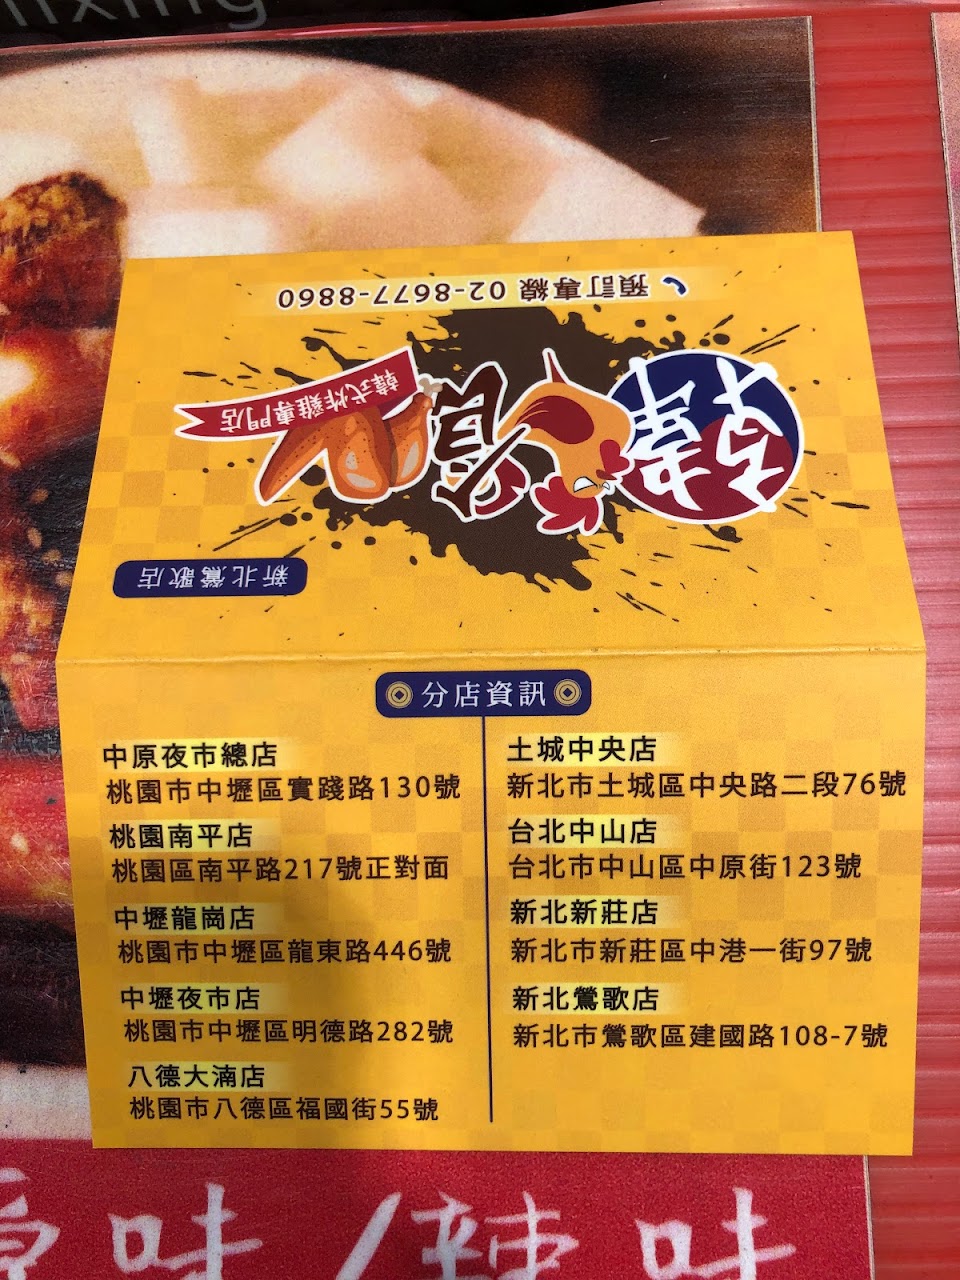 lixing
預訂專線 02-8677-8860
韓食
韓式炸雞專門店
新北鶯歌店
分店資訊
中原夜市總店
桃園市中壢區實踐路130號
桃園南平店
桃園區南平路217號正對面
中壢龍崗店
桃園市中壢區龍東路446號
中壢夜市店
桃園市中壢區明德路282號
八德大湳店
桃園市八德區福國街55號
土城中央店
新北市土城區中央路二段76號
台北中山店
台北市中山區中原街123號
新北新莊店
新北市新莊區中港一街97號
新北鶯歌店
新北市鶯歌區建國路108-7號
味/辣味